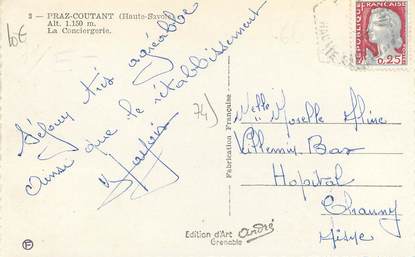 3 - PRAZ-COUTANT (Haute-Savoie)
Alt. 1.150 m.
La Conciergerie.
10€
Séjour très agréable
Ainsi que le rétablissement
74)
Fabrication Française
RÉPUBLIQUE FRANÇAISE
0,25
Melle Moselle
Villemin Bar
Hopital
Chauny
Aisne
Edition d'Art André
Grenoble
F